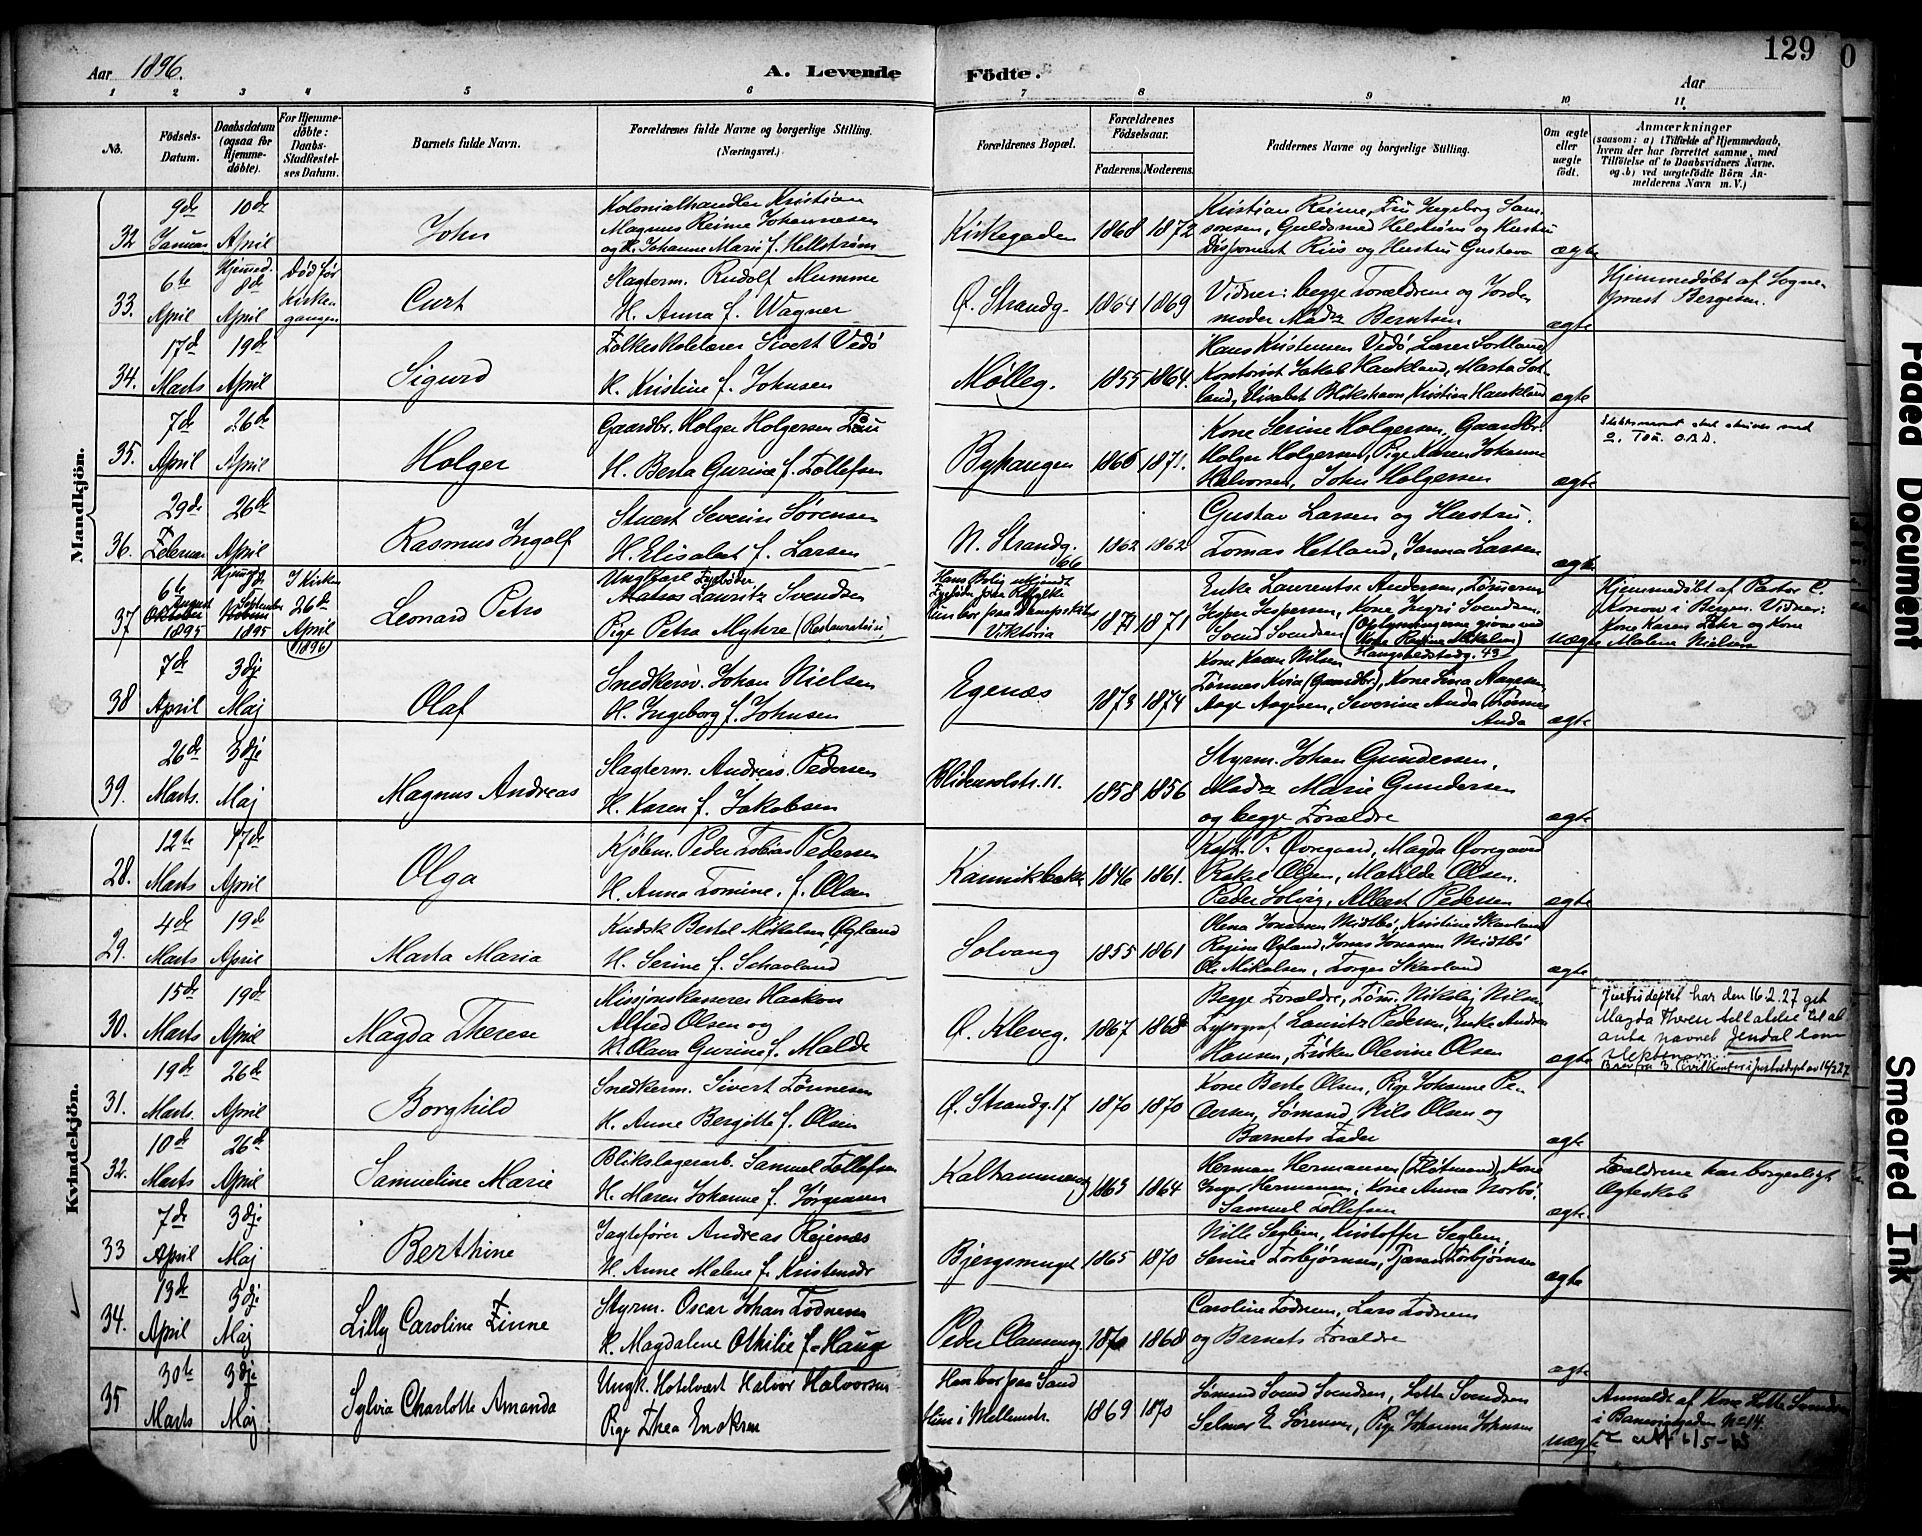 Aar 1896.
A. Levende Födte.
129
Aar
1 2 3 4 5 6 7 8 9 10 11
No.
Födsels-Datum.
Daabsdatum (ogsaa for Hjemme-døbte).
For Hjemme-døbte: Daabs-Stadfestel-ses Datum.
Barnets fulde Navn.
Forældrenes fulde Navne og borgerlige Stilling. (Næringsvei.)
Forældrenes Bopæl.
Forældrenes Födselsaar.
Faderens. Moderens.
Faddernes Navne og borgerlige Stilling.
Om ægte eller uægte födt.
Anmærkninger
(saasom: a) i Tilfælde af Hjemmedaab, hvem der har forrettet samme, med Tilföielse af to Daabsvidners Navne, og b) ved uægtefödte Börn An-melderens Navn m. V.)
Mandkjön.
32 9de Januar 10de April John
Kolonialhandler Kristian
Magnus Reime Johannesen
og H. Johanne Marie f. Hellstrøm
Kirkegaden 1868 1872
Kristian Reime, Fru Ingeborg Sam-
sonsen, Guldsmed Hellstrøm og Hustru
Disponent Riis og Hustru Gustava
ægte
33. 6te April Hjemmed. 8de April Død før Kirke-gangen Curt
Slagterm. Rudolf Mumme
H. Anna f. Wagner
Ø. Strandg. 1864 1869
Vidner: begge Forældrene og Jorde-
moder Mad. Berntsen
ægte
Hjemmedøbt af Sogne-
prest Bergesen.
34. 17de Marts 19de April Sigurd
Folkeskolelærer Sivert Vedø
H. Kristine f. Johnsen
Mølleg. 1855 1864.
Hans Kristensen Vedø, Lærer Sortland
Kontorist Jakob Haukland, Marta Sort-
land, Elisabet Blikshavn, Kristian Haukland
ægte
35. 7de April 26de April Holger
Gaardbr. Holger Holgersen Tou
H. Berta Gurine f. Tollefsen
Byhaugen 1865 1871.
Kone Serine Holgersen, Gaardbr.
Holger Holgersen, Pige Karen Johanne
Halvorsen, John Holgersen
ægte
36. 29de Februar 26de April Rasmus Ingolf
Stuert Severin Sørensen
H. Elisabet f. Larsen
N. Strandg. 66 1862 1862
Gustav Larsen og Hustru.
Tomas Hetland, Janna Larsen
ægte
37 6te August Oktober 1895 Hjemmed. September 1895 I Kirken 26de April (1896) Leonard Petro
Ungkarl Fyrbøder
Matros Lauritz Svendsen
Pige Petra Myhre (Restauratrice)
Hans Bolig ukjendt
Hun bor paa Dampskibet
Viktoria
1871
Enke Laurentse Andersen, Tømmerm.
Jesper Jespersen, Kone Ingri Svendsen
Svend Svendsen (Oplysningerne givne ved
Kone Rasmine Mikelsen
Haugehedstadg. 43)
uægte
Hjemmedøbt af Pastor C.
Konow i Bergen. Vidner:
Kone Karen Lehr og Kone
Malene Nielsen
38 7de April 3dje Maj Olaf
Snedkersv. Johan Nielsen
H. Ingeborg f. Johnsen
Egenæs 1873 1874
Kone Karen Nilsen
Tønnes Kvia (Gaardbr.), Kone Sina Aagesen,
Aage Aagesen, Severine Anda Tønnes
Anda
ægte
39. 26de Marts. 3dje Maj Magnus Andreas
Slagterm. Andreas Pedersen
H. Karen f. Jakobsen
Blidensolstr. 11. 1858 1856
Styrm. Johan Gundersen,
Mad. Marie Gundersen
og begge Forældre
ægte
Kvindekjön.
28. 12te Marts 17de April Olga
Kjøbm. Peder Tobias Pedersen
H. Anna Tomine, f. Olsen
Kannikbakk. 1846 1861.
Kapt. P. Øvregaard, Magda Øvregaard
Rakel Olsen, Matilde Olsen.
Peder Solvig, Albert Pedersen
ægte
29. 4de Marts 19de April Marta Maria
Kudsk Bertel Mikalsen Øgland
H. Serine f. Schavland
Solvang 1855 1861
Olena Jonassen Midtbø, Kristine Skavland
Regine Øgland, Jonas Jonassen Midtbø
Ole Mikalsen, Torger Skavland
ægte
30. 15de Marts 19de April Magda Therese
Missjonskasserer Haakon
Alfred Olsen og
H. Olava Gurine f. Malde
Ø. Kleveg. 1867 1868
Begge Forældre, Tøm. Nikolaj Nilsen
Typograf Lauritz Pedersen, Enke Andrea
Hansen, Frøken Olevine Olsen
ægte
Justisdeptet har den 16.2.27 git
Magda Therese tillatelse til at
anta navnet Jendal som
slektsnavn.
Brev fra 3. Civilkontor i justisdept av 16/2 27
31. 19de Marts. 26de April Borghild
Snedkerm. Sivert Tønnesen
H. Anne Bergitte f. Olsen
Ø. Strandg. 17 1870 1870
Kone Berte Olsen, Pige Johanne Pe-
dersen, Sømand Nils Olsen og
Barnets Fader
ægte
32. 10de Marts 26de April Samueline Marie
Blikslagerarb. Samuel Tollefsen
H. Maren Johanne f. Jørgensen
Kalhammerv. 1863 1864
Herman Hermansen (Fløtmand), Kone
Inger Hermansen, Kone Anna Norbø.
Samuel Tollefsen
ægte.
Forældrene har borgerligt
Ægteskab
33 7de April 3dje Maj Berthine
Jagtefører Andreas Rejenæs
H. Anne Malene f. Kristensdr
Bjergsmuget 1865 1870
Nille Seglem, Kristoffer Seglem,
Serine Torbjørnsen, Tjeran Torbjørnsen
ægte
34. 13de April 3dje Maj Lilly Caroline Finne
Styrm. Oscar Johan Todnem
H. Magdalene Othilie f. Hauge
Peder Clausens. 1870 1868
Caroline Todnem, Lars Todnem
og Barnets Forældre
ægte
35 30te Marts 3dje Maj Sylvia Charlotte Amanda
Ungk. Hotelvært Halvor Halvorsen
Pige Thea Enoksen
Han bor paa Sand
Hun i Mellemstr. 1869 1870
Sømand Svend Svendsen, Lotte Svendsen
Selmer E. Sørensen, Pige Johanne Johnsen
uægte
Anmeldt af Kone Lotte Svendsen
i Banevigsgaden No 14.
Faded Document
Smeared Ink